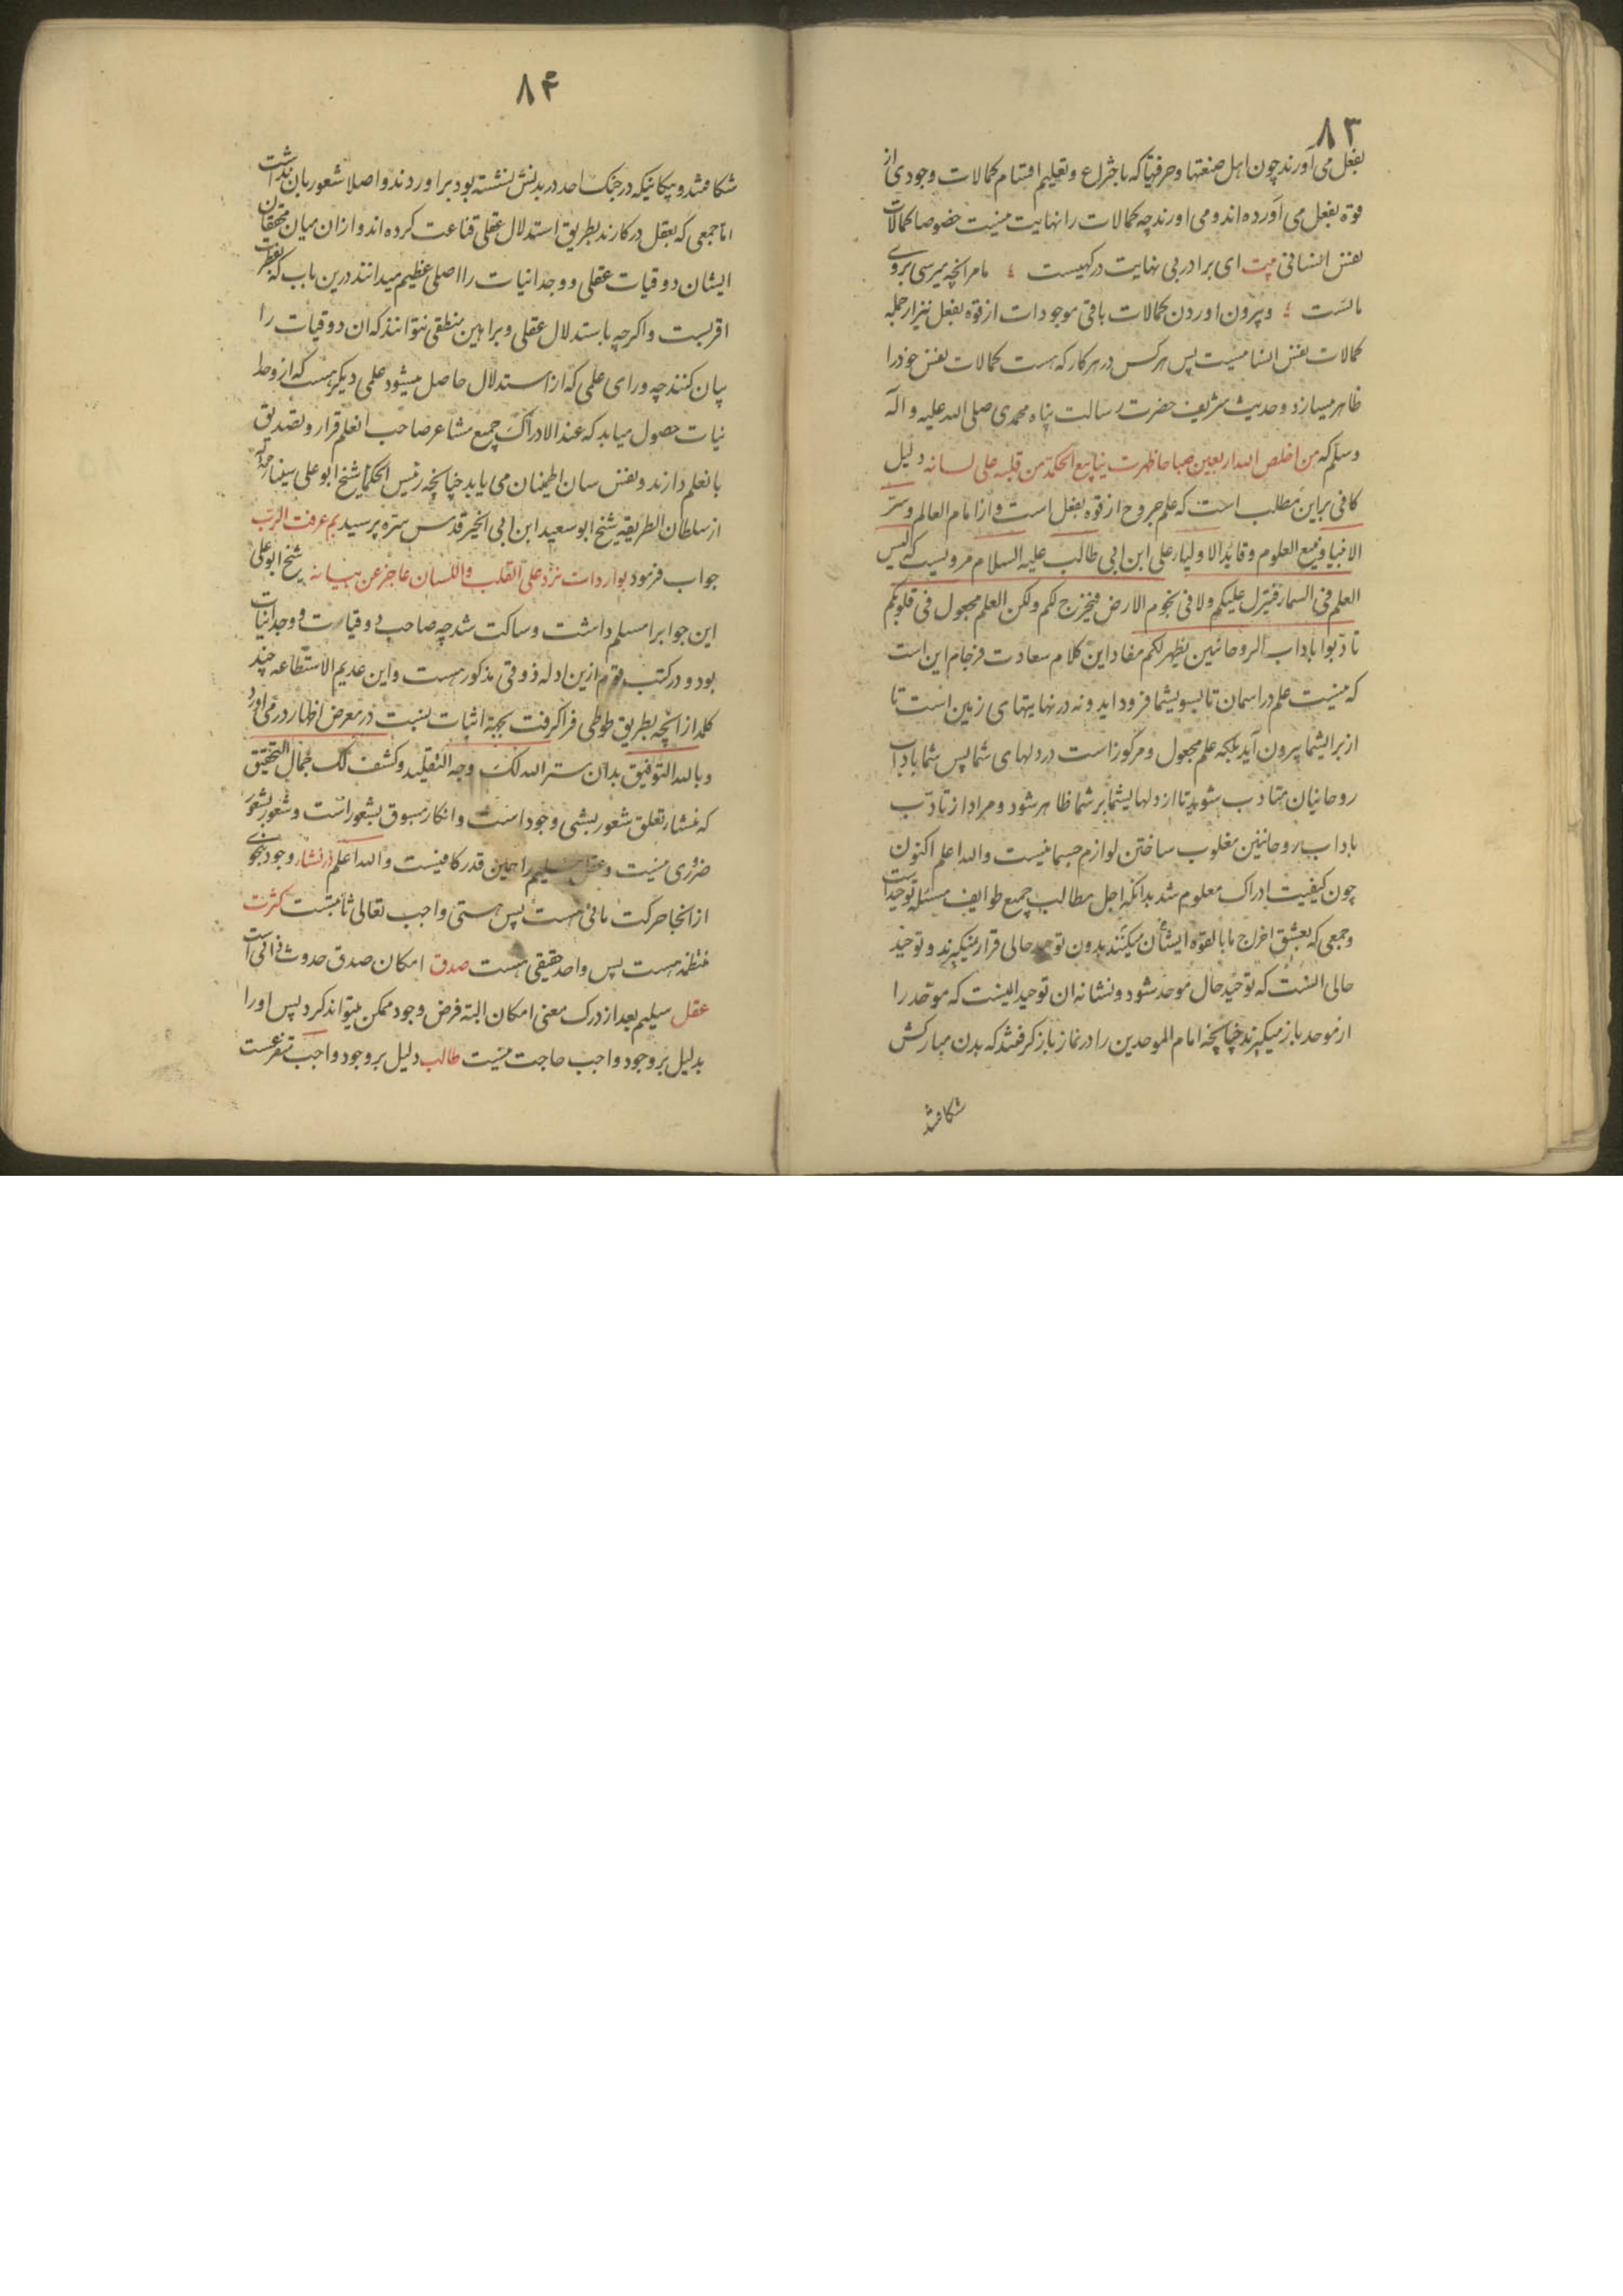 ۸۳
بفعل می آورند چون اهل صنعتها و حرفتها که باختراع و تعلیم اقسام کمالات وجودی از
قوة بفعل می آورده اند و می اورند چه کمالات را نهایت نیست خصوصا کمالات
نفس انسانی بیت ای برادر بی نهایت درکهیست هر انچه میرسی بروی
مائست و بیرون اوردن کمالات باقی موجودات از قوه بفعل نیز از جمله
کمالات نفس انسانیست پس هر کس در هر کار که هست کمالات نفس خود را
ظاهر میسازد و حدیث شریف حضرت رسالت پناه محمدی صلی الله علیه و آله
وسلم که من اخلص لله اربعین صباحا ظهرت ینابیع الحکمة من قلبه علی لسانه دلیل
کافی بر این مطلب است که علم خروج از قوه بفعل است و از امام العالم و سرّ
الانبیا و منبع العلوم و قاید الاولیاء علی ابن ابی طالب علیه السلام مرویست که لیس
العلم فی السماء فینزل علیکم ولا فی نجوم الارض فیخرج لکم ولکن العلم مجعول فی قلوبکم
تادبوا باداب الروحانیین یظهر لکم مفاد این کلام سعادت فرجام این است
که نیست علم در اسمان تا بسوی شما فرود اید و نه در نهایتهای زمین است تا
از برایشما بیرون آید بلکه علم مجعول و مرکوز است در دلهای شما پس شما باداب
روحانیان متادب بشوید تا از دلهایشما بر شما ظاهر شود و مراد از تادّب
باداب روحانیین مغلوب ساختن لوازم جسمانیست والله اعلم اکنون
چون کیفیت ادراک معلوم شد بدانکه اجل مطالب جمیع طوایف مسئله توحید است
و جمعی که بعشق اخراج ما بالقوه ایشان میکنند بدون توحید حالی قرار نمیگیرند و توحید
حالی انست که توحید حال موحد شود و نشانه ان توحید اینست که موحد را
از موحد باز میگیرند چنانچه امام الموحدین را در نماز باز گرفتند که بدن مبارکش
شکافتند
۸۴
شکافتند و پیکانیکه در جنک احد در بدنش نشسته بود براوردند و اصلا شعور بان نداشت
اما جمعی که بعقل در کارند بطریق استدلال عقلی قناعت کرده اند و از ان میان محققان
ایشان ذوقیات عقلی و وجدانیات را اصلی عظیم میدانند درین باب که بفطرت
اقربست و اکرچه باستدلال عقلی و براهین منطقی نتوانند که ان ذوقیات را
بیان کنند چه ورای علمی که از استدلال حاصل میشود علمی دیکر هست که از وجدا
نیات حصول میابد که عند الادراک جمیع مشاعر صاحب انعلم قرار و تصدیق
بانعلم دارند و نفس سان اطمینان می یابد چنانچه رئیس الحکما شیخ ابو علی سینا رحمه الله
از سلطان الطریقه شیخ ابو سعید ابن ابی الخیر قدس سره پرسید بم عرفت الرب
جواب فرمود بواردات ترد علی القلب واللسان عاجز عن بیانه شیخ ابو علی
این جوابرا مسلم داشت و ساکت شد چه صاحب ذوقیات و وجدانیات
بود و در کتب قوم ازین ادله ذوقی مذکور هست و این عدیم الاستطاعه چند
کلمه از انچه بطریق طوطی فرا کرفت بجهة اثبات نسبت در معرض اظهار در می اورد
و بالله التوفیق بدان ستر الله لک وجه التقلید و کشف لک جمال التحقیق
که منشاء تعلق شعور بشی وجود است و انکار مسبوق بشعور است و شعور بشعور
ضروری نیست و عقل سلیم را همین قدر کافیست والله اعلم در نشاء وجود بنحوی
از انحا حرکت مائی هست پس هستی واجب تعالی ثابتست کثرت
منتظمه هست پس واحد حقیقی هست صدق امکان صدق حدوث ذاتی است
عقل سلیم بعد از درک معنی امکان البته فرض وجود ممکن میتواند کرد پس او را
بدلیل بر وجود واجب حاجت نیست طالب دلیل بر وجود واجب متفرعست